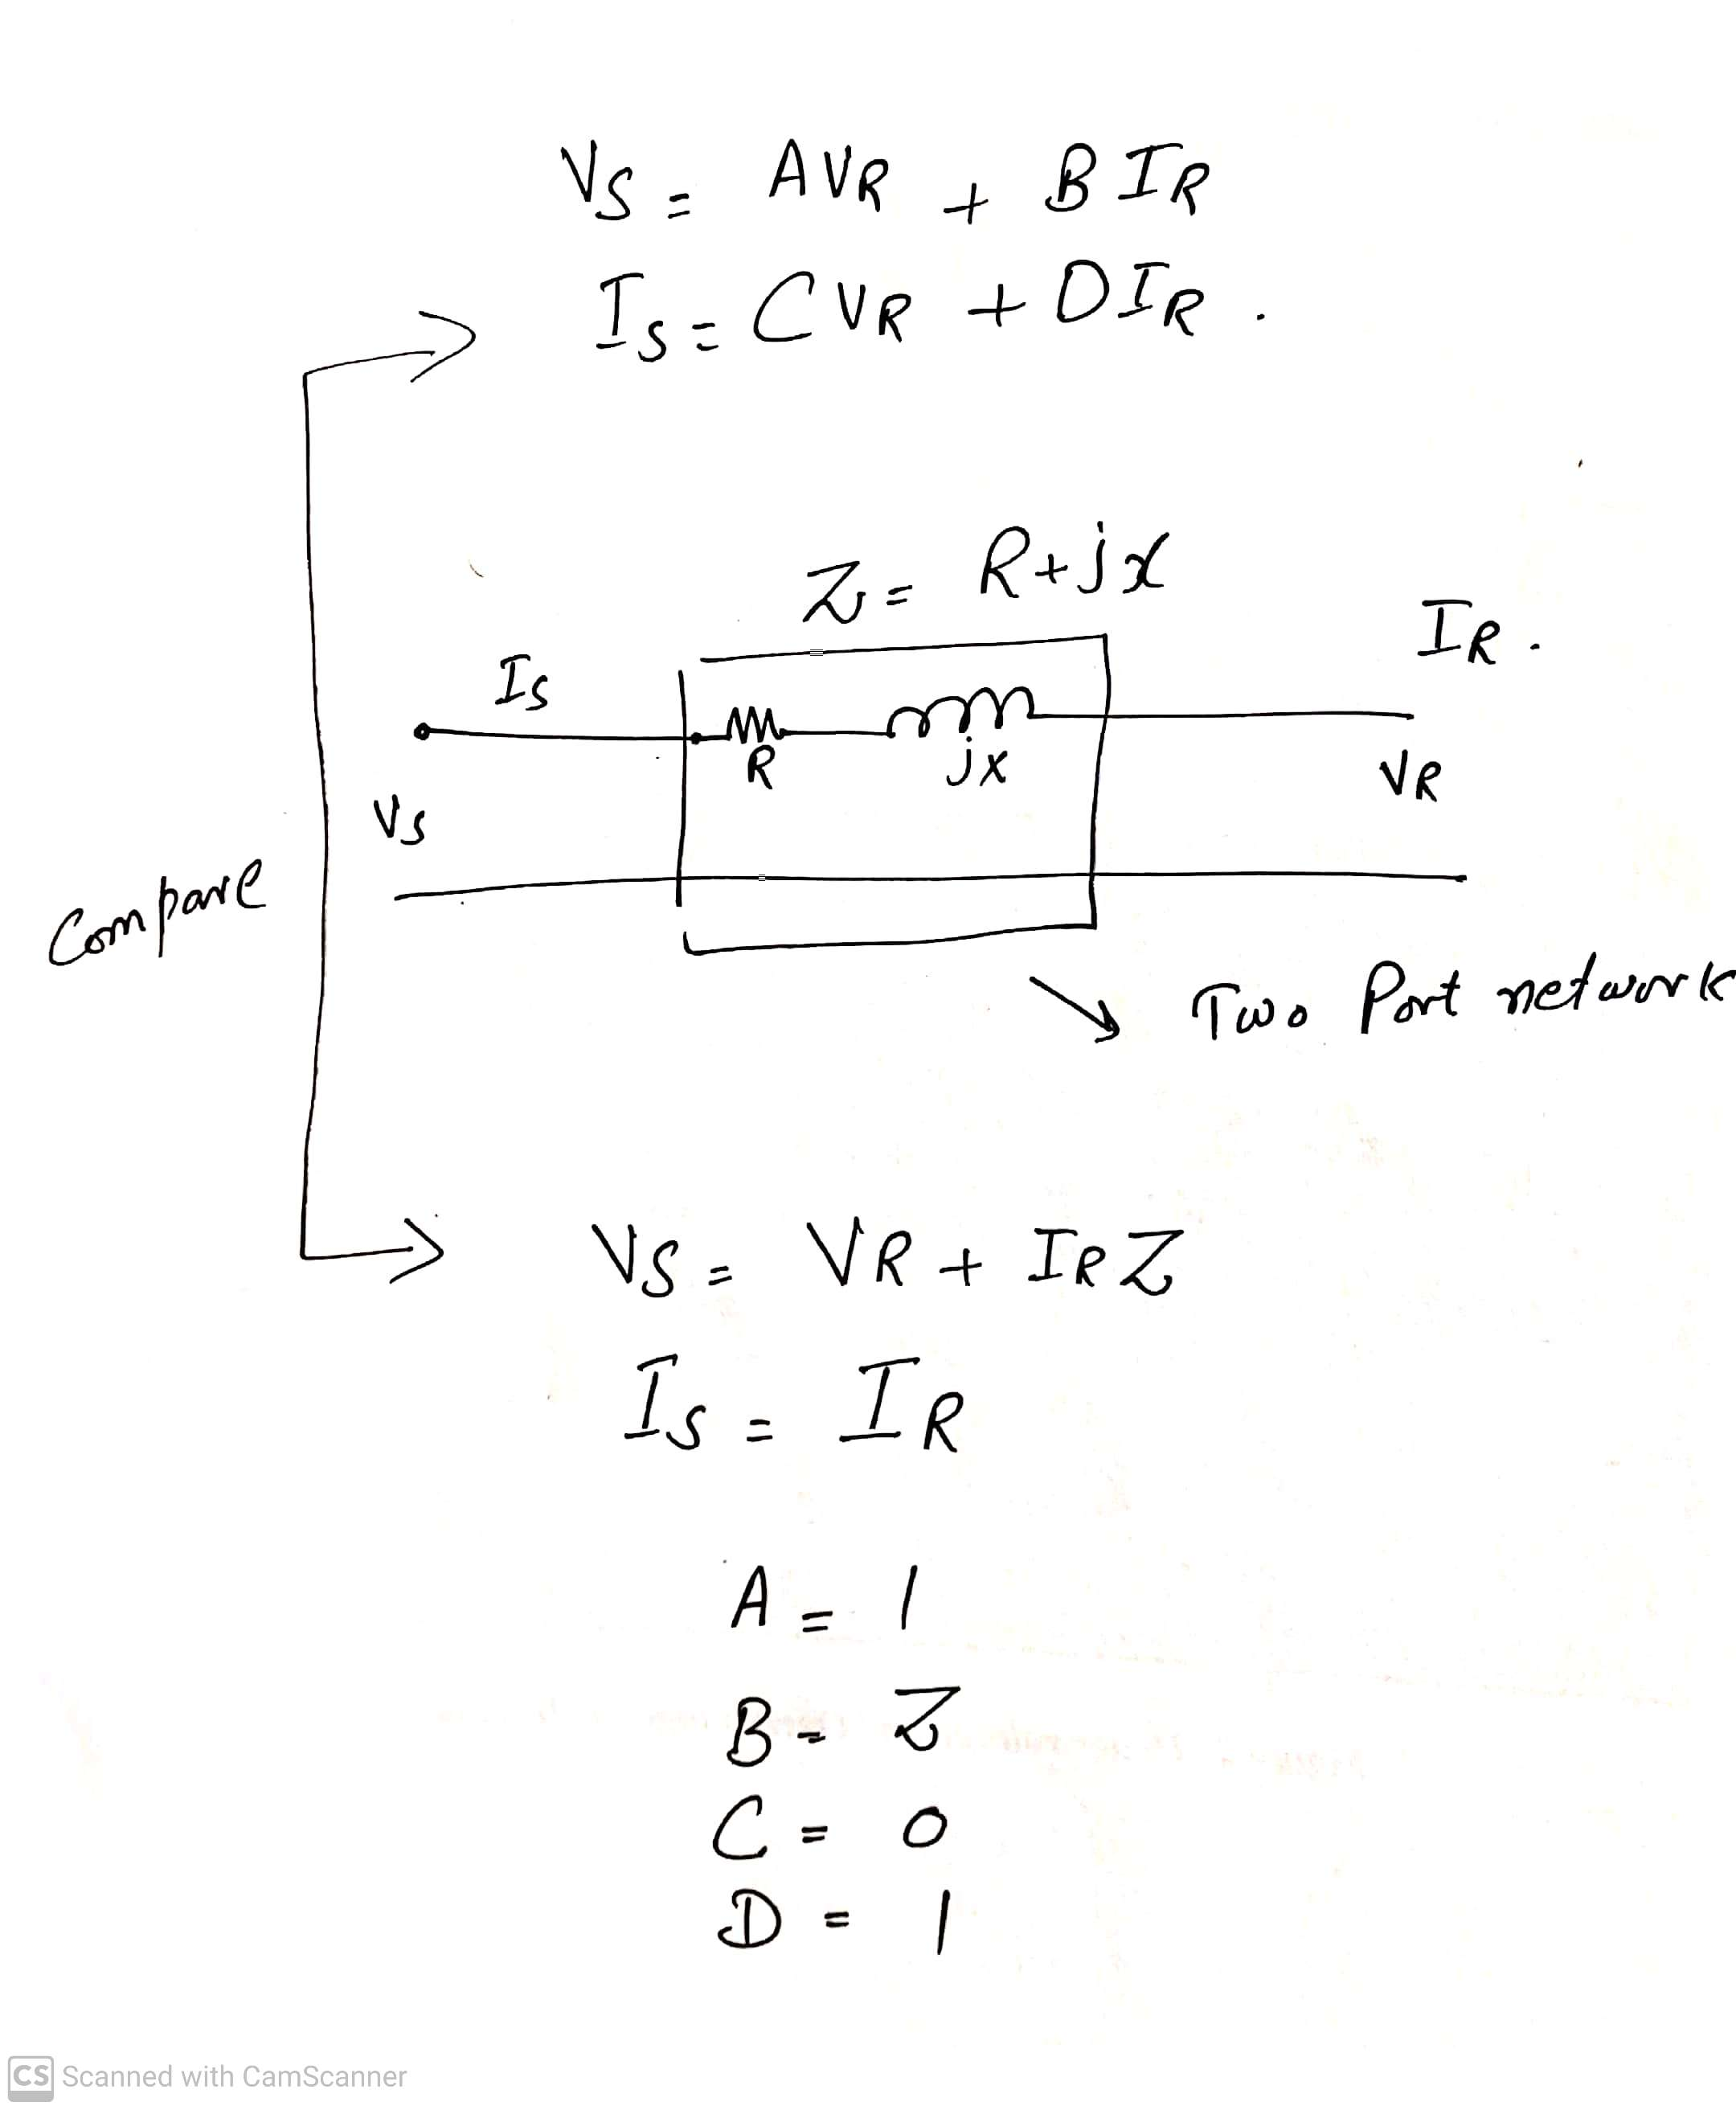 VS = AVR + BIR
IS = CVR + DIR.
Z = R+jx
IR.
IS
R
jx
VR
VS
Compare
Two Port network
VS = VR + IRZ
IS = IR
A = 1
B = Z
C = 0
D = 1
CS Scanned with CamScanner